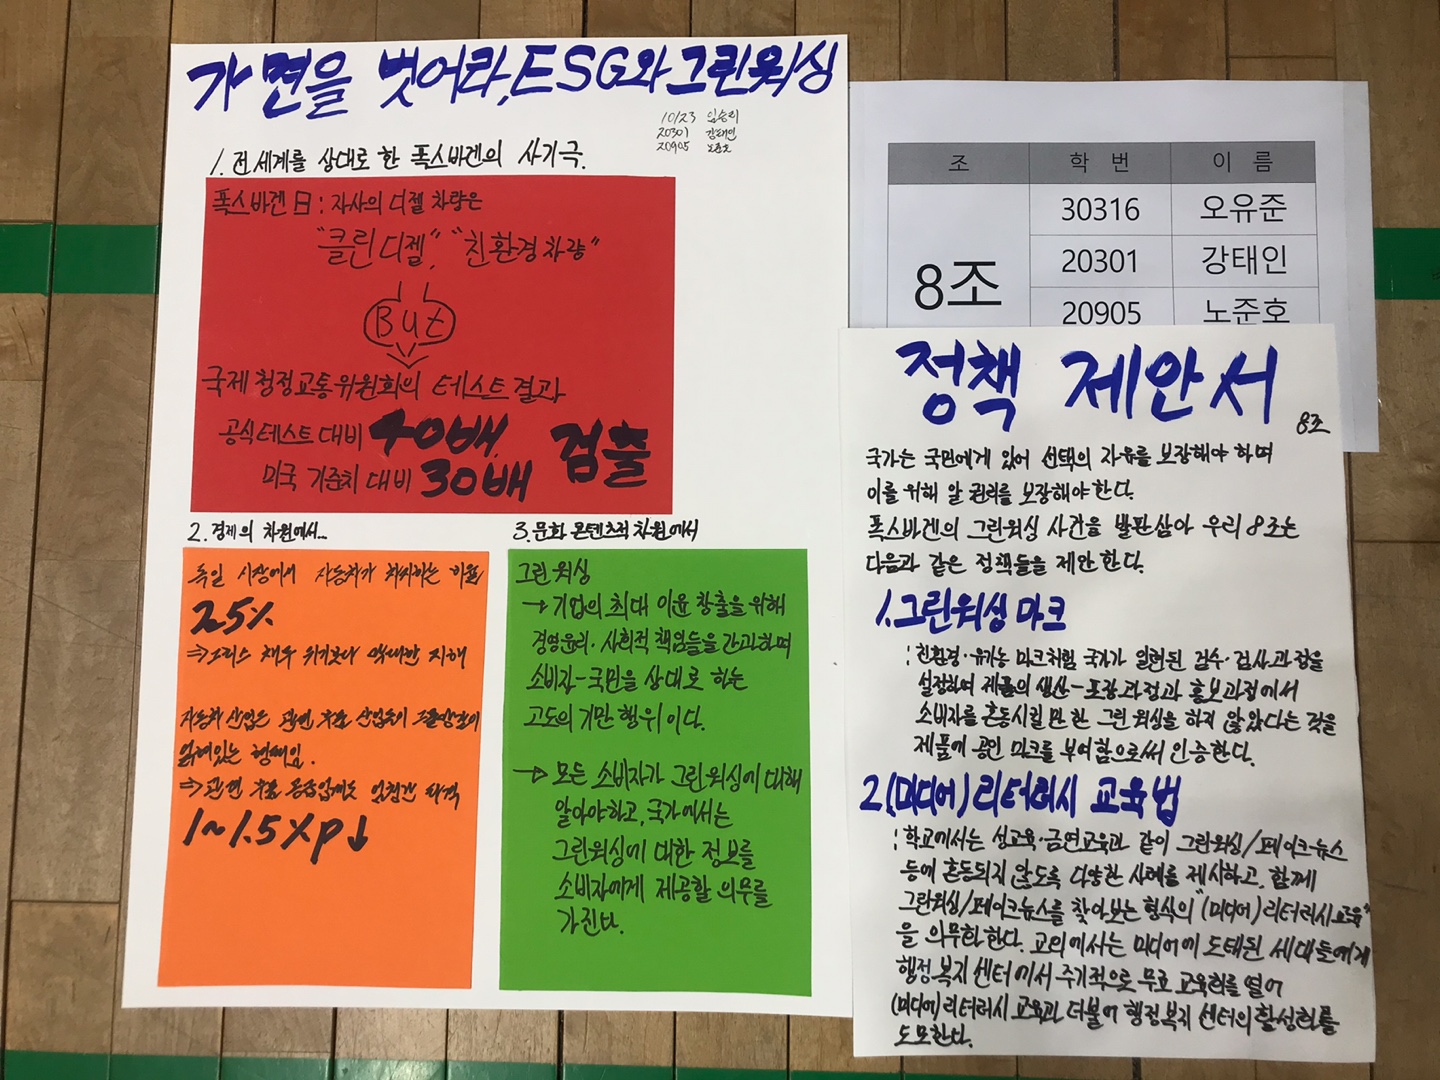 가면을 벗어라, ESG와 그린워싱
10/23 임승리
20301 강태인
20905 노준호
1. 전 세계를 상대로 한 폭스바겐의 사기극.
폭스바겐 曰 : 자사의 디젤 차량은
"클린디젤", "친환경차량"
But
국제청정교통위원회의 테스트 결과
공식테스트 대비 40배
미국 기준치 대비 30배 검출
2. 경제의 차원에서...
독일 시장에서 자동차가 차지하는 비율
25%
⇒그리스 채무 위기보다 막대한 지해
자동차 산업은 관련 부품 산업들이
얽혀있는 형태임.
⇒관련 부품 공급업체도 엄청난 타격
1~1.5%p↓
3. 문화 콘텐츠적 차원에서
그린워싱
→ 기업의 최대 이윤 창출을 위해
경영윤리·사회적 책임들을 간과하며
소비자-국민을 상대로 하는
고도의 기만 행위이다.
→ 모든 소비자가 그린워싱에 대해
알아야하고, 국가에서는
그린워싱에 대한 정보를
소비자에게 제공할 의무를
가진다.
조 학 번 이 름
8조 30316 오유준
20301 강태인
20905 노준호
정책 제안서
8조
국가는 국민에게 있어 선택의 자유를 보장해야 하며
이를 위해 알 권리를 보장해야한다.
폭스바겐의 그린워싱 사건을 발판삼아 우리 8조는
다음과 같은 정책들을 제안한다.
1. 그린워싱 마크
: 친환경·유기농 마크처럼 국가가 일련된 검수·검사과정을
설정하여 제품의 생산-포장과정과 홍보과정에서
소비자를 혼동시킬 만한 그린워싱을 하지 않았다는 것을
제품에 공인 마크를 부여함으로써 인증한다.
2. (미디어) 리터러시 교육법
: 학교에서는 성교육·금연교육과 같이 그린워싱/페이크뉴스
등에 혼동되지 않도록 다양한 사례를 제시하고, 함께
그린워싱/페이크뉴스를 찾아보는 형식의 "(미디어)리터러시교육"
을 의무화한다. 교외에서는 미디어에 도태된 세대들에게
행정복지센터에서 주기적으로 무료 교육회를 열어
(미디어)리터러시 교육과 더불어 행정복지 센터의 활성화를
도모한다.